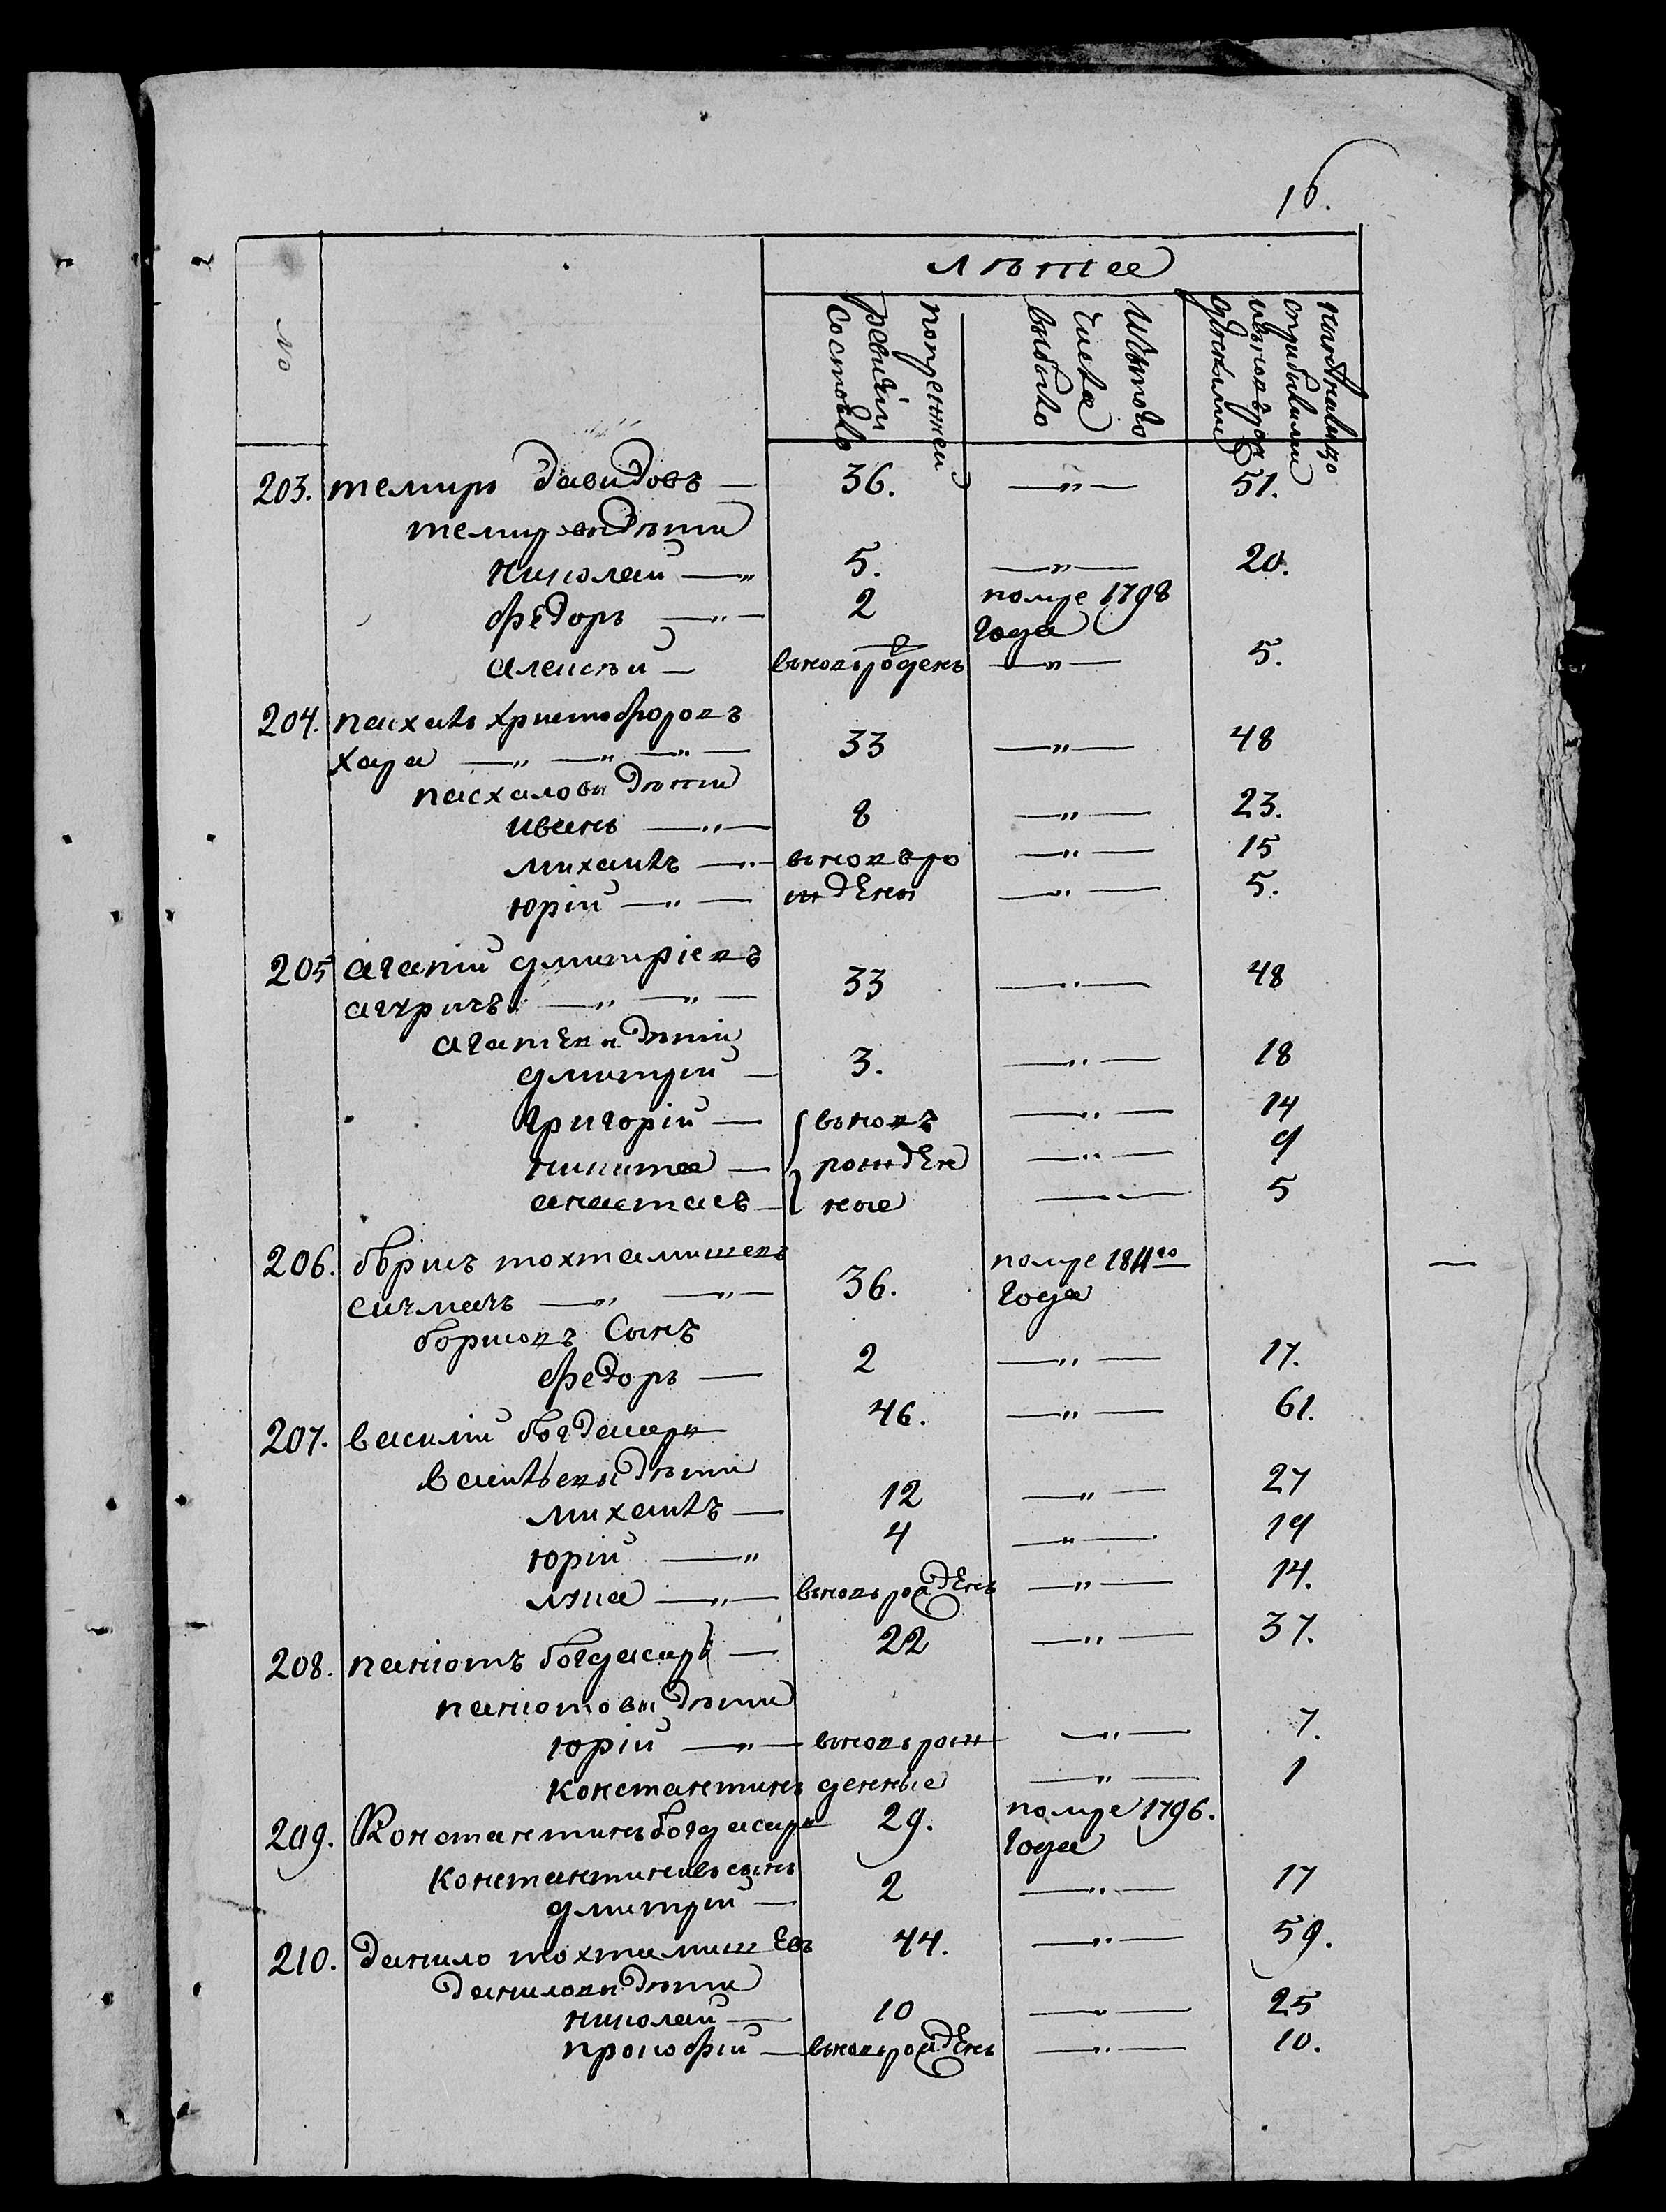 16.
№
Лѣтае
попрежней
ревизіи
состояло
Изътого
числа
выбыло
ныне наличо
сприбылыми
ивновьрож
денными
203. темиръ давидовъ — 36. —„— 51.
темировыдѣти
николай —„ 5. —„— 20.
Федоръ —„— 2 помре 1798
года
алексѣй — вновьрожденъ —„— 5.
204. пасхалъ христофоровъ
хара —„ —„ —„— 33 —„— 48
пасхаловы дѣти
иванъ —„— 8 —„— 23.
михаилъ —„— вновъро —„— 15
юрій —„— ждены —„— 5.
205 агапій дмитріевъ
—„ —„— 33 —„— 48
агапіевы дѣти
дмитрій — 3. —„— 18
григорій — вновъ —„— 14
никита — рожден —„— 9
анастасъ — ные —„— 5
206. борисъ тохтамишевъ
—„ —„— 36. помре 1811го
года
борисовъ сынъ
Федоръ — 2 —„— 17.
207. василій богдасаръ 46. —„— 61.
васильевыдѣти
михаилъ — 12 —„— 27
юрій —„ 4 —„— 19
лука —„— вновьрожденъ —„— 14.
208. паніотъ богдасаръ — 22 —„— 37.
паніотовы дѣти
юрій —„— вновьрож —„— 7.
константинъ денные —„— 1
209. Константинъбогдасаръ 29. помре 1796.
года
константиновъсынъ
дмитрій — 2 —„— 17
210. данило тохтамишевъ 44. —„— 59.
даниловы дѣти
николай — 10 —„— 25
прокофій — вновьрожденъ —„— 10.